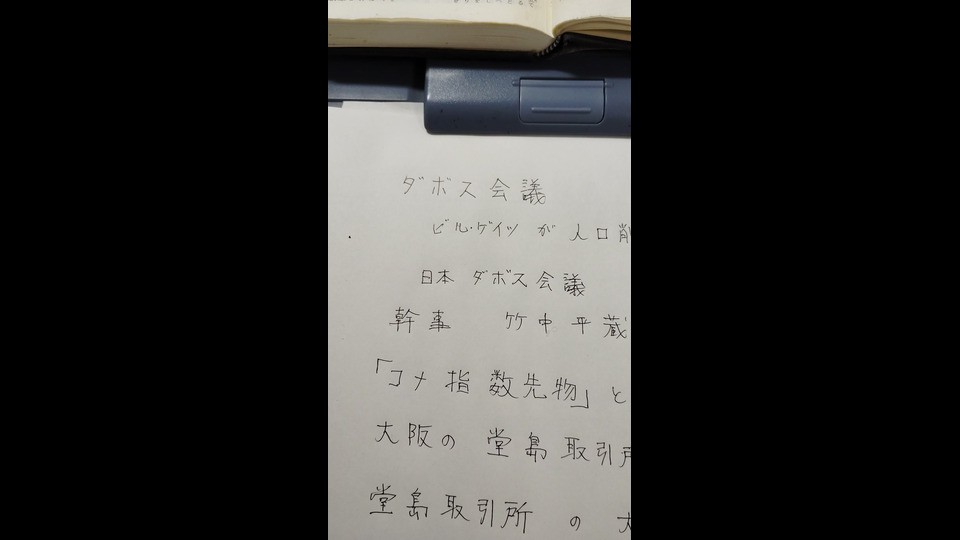 ダボス会議
ビル・ゲイツ が 人口削
日本 ダボス会議
幹事 竹中平蔵
「コメ指数先物」と
大阪の 堂島取引所
堂島取引所 の 大